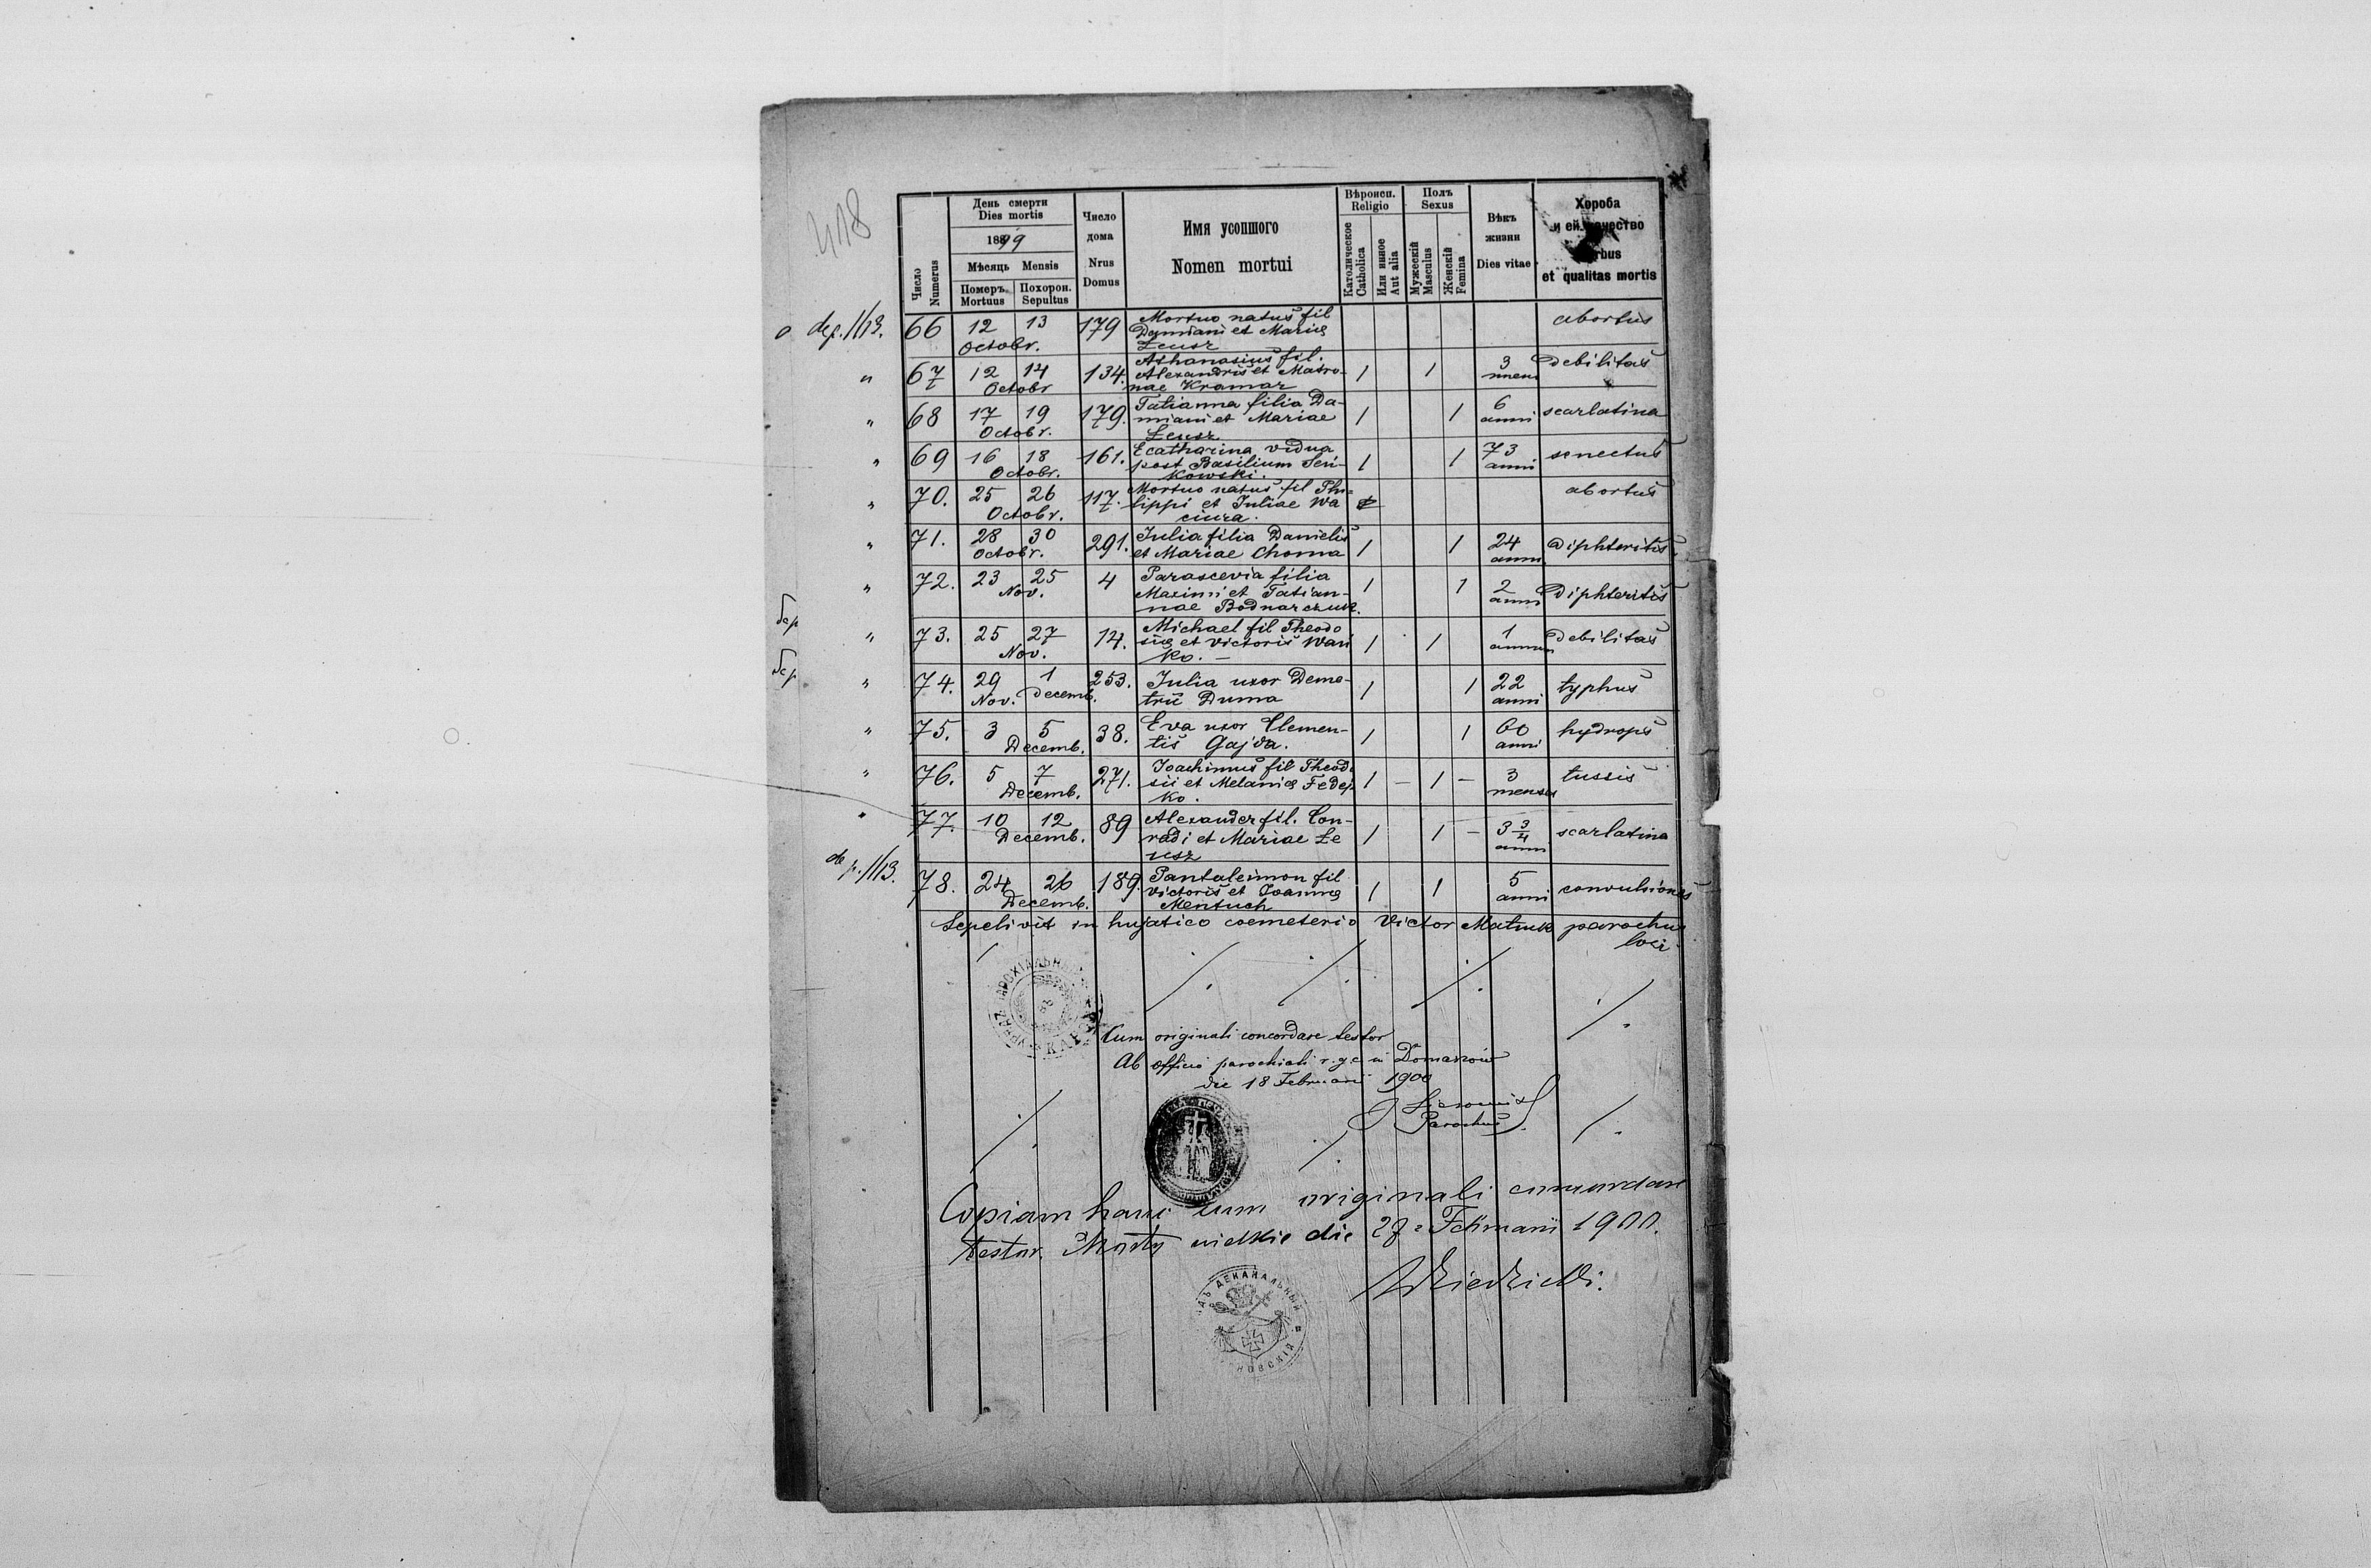 418
День смерти
Dies mortis
1899
Мѣсяць Mensis
Померъ Похорон.
Mortuus Sepultus
Число
Numerus
Число
дома
Nrus
Domus
Имя усопшого
Nomen mortui
Вѣроисп.
Religio
Католическое
Catholica
Или инное
Aut alia
Полъ
Sexus
Мужескій
Masculus
Женскій
Femina
Вѣкъ
жизни
Dies vitae
Хороба
и ей качество
et qualitas mortis
66 12 13 179 Mortuo natus fil abortus
Octobr. Damiani et Mariæ
Leusz
67 12 14 134. Athanasius fil. 1 1 3 debilitas
Octobr Alexandris et Matro-
nae Kramar
68 17 19 179. Tatianna filia Da- 1 1 6 scarlatina
Octobr. miani et Mariae anni
Leusz
69 16 18 161. Ecatharina vidua 1 1 73 senectus
Octobr. post Basilium Sen- anni
kowski.
70. 25 26 117. Mortuo natus fil Phi- abortus
Octobr. lippi et Juliae Wa
ciura.
71. 28 30 291. Julia filia Danielis 1 1 24 Diphteritis
Octobr. et Mariae Choma anni
72. 23 25 4 Parascevia filia 1 1 2 Diphteritis
Nov. Maximi et Tatian- anni
nae Bodnarczuk.
73. 25 27 14. Michael fil Theodo 1 1 1 debilitas
Nov. siæ et Victoris
ko.
74. 29 1 253. Julia uxor Deme- 1 1 22 typhus
Nov. Decemb. trii Duma anni
75. 3 5 38. Eva uxor Clemen- 1 1 60 hydrops
Decemb. tis Gajda. anni
76. 5 7 271. Joachimus fil Theodo 1 – 1 – 3 tussis
Decemb. sii et Melaniæ menses
ko.
77. 10 12 89 Alexander fil. Con- 1 1 – 3 3/4 scarlatina
Decemb. radi et Mariae Le anni
usz
78. 24 26 189. Pantaleimon fil 1 1 5 convulsiones
Decemb. Victoris et Joannæ anni
Mentuch
Sepelivit in hujatico coemeterio Victor Matiuk parochus
loci
Cum originali concordare testor
Ab officio parochiali r. g. c. in Domaszów
die 18 Februarii 1900
Parochus
Copiam hanc cum originali concordare
testor. Mosty wielkie die 27 Februarii 1900.
ДЕКАНАЛЬНЫЙ